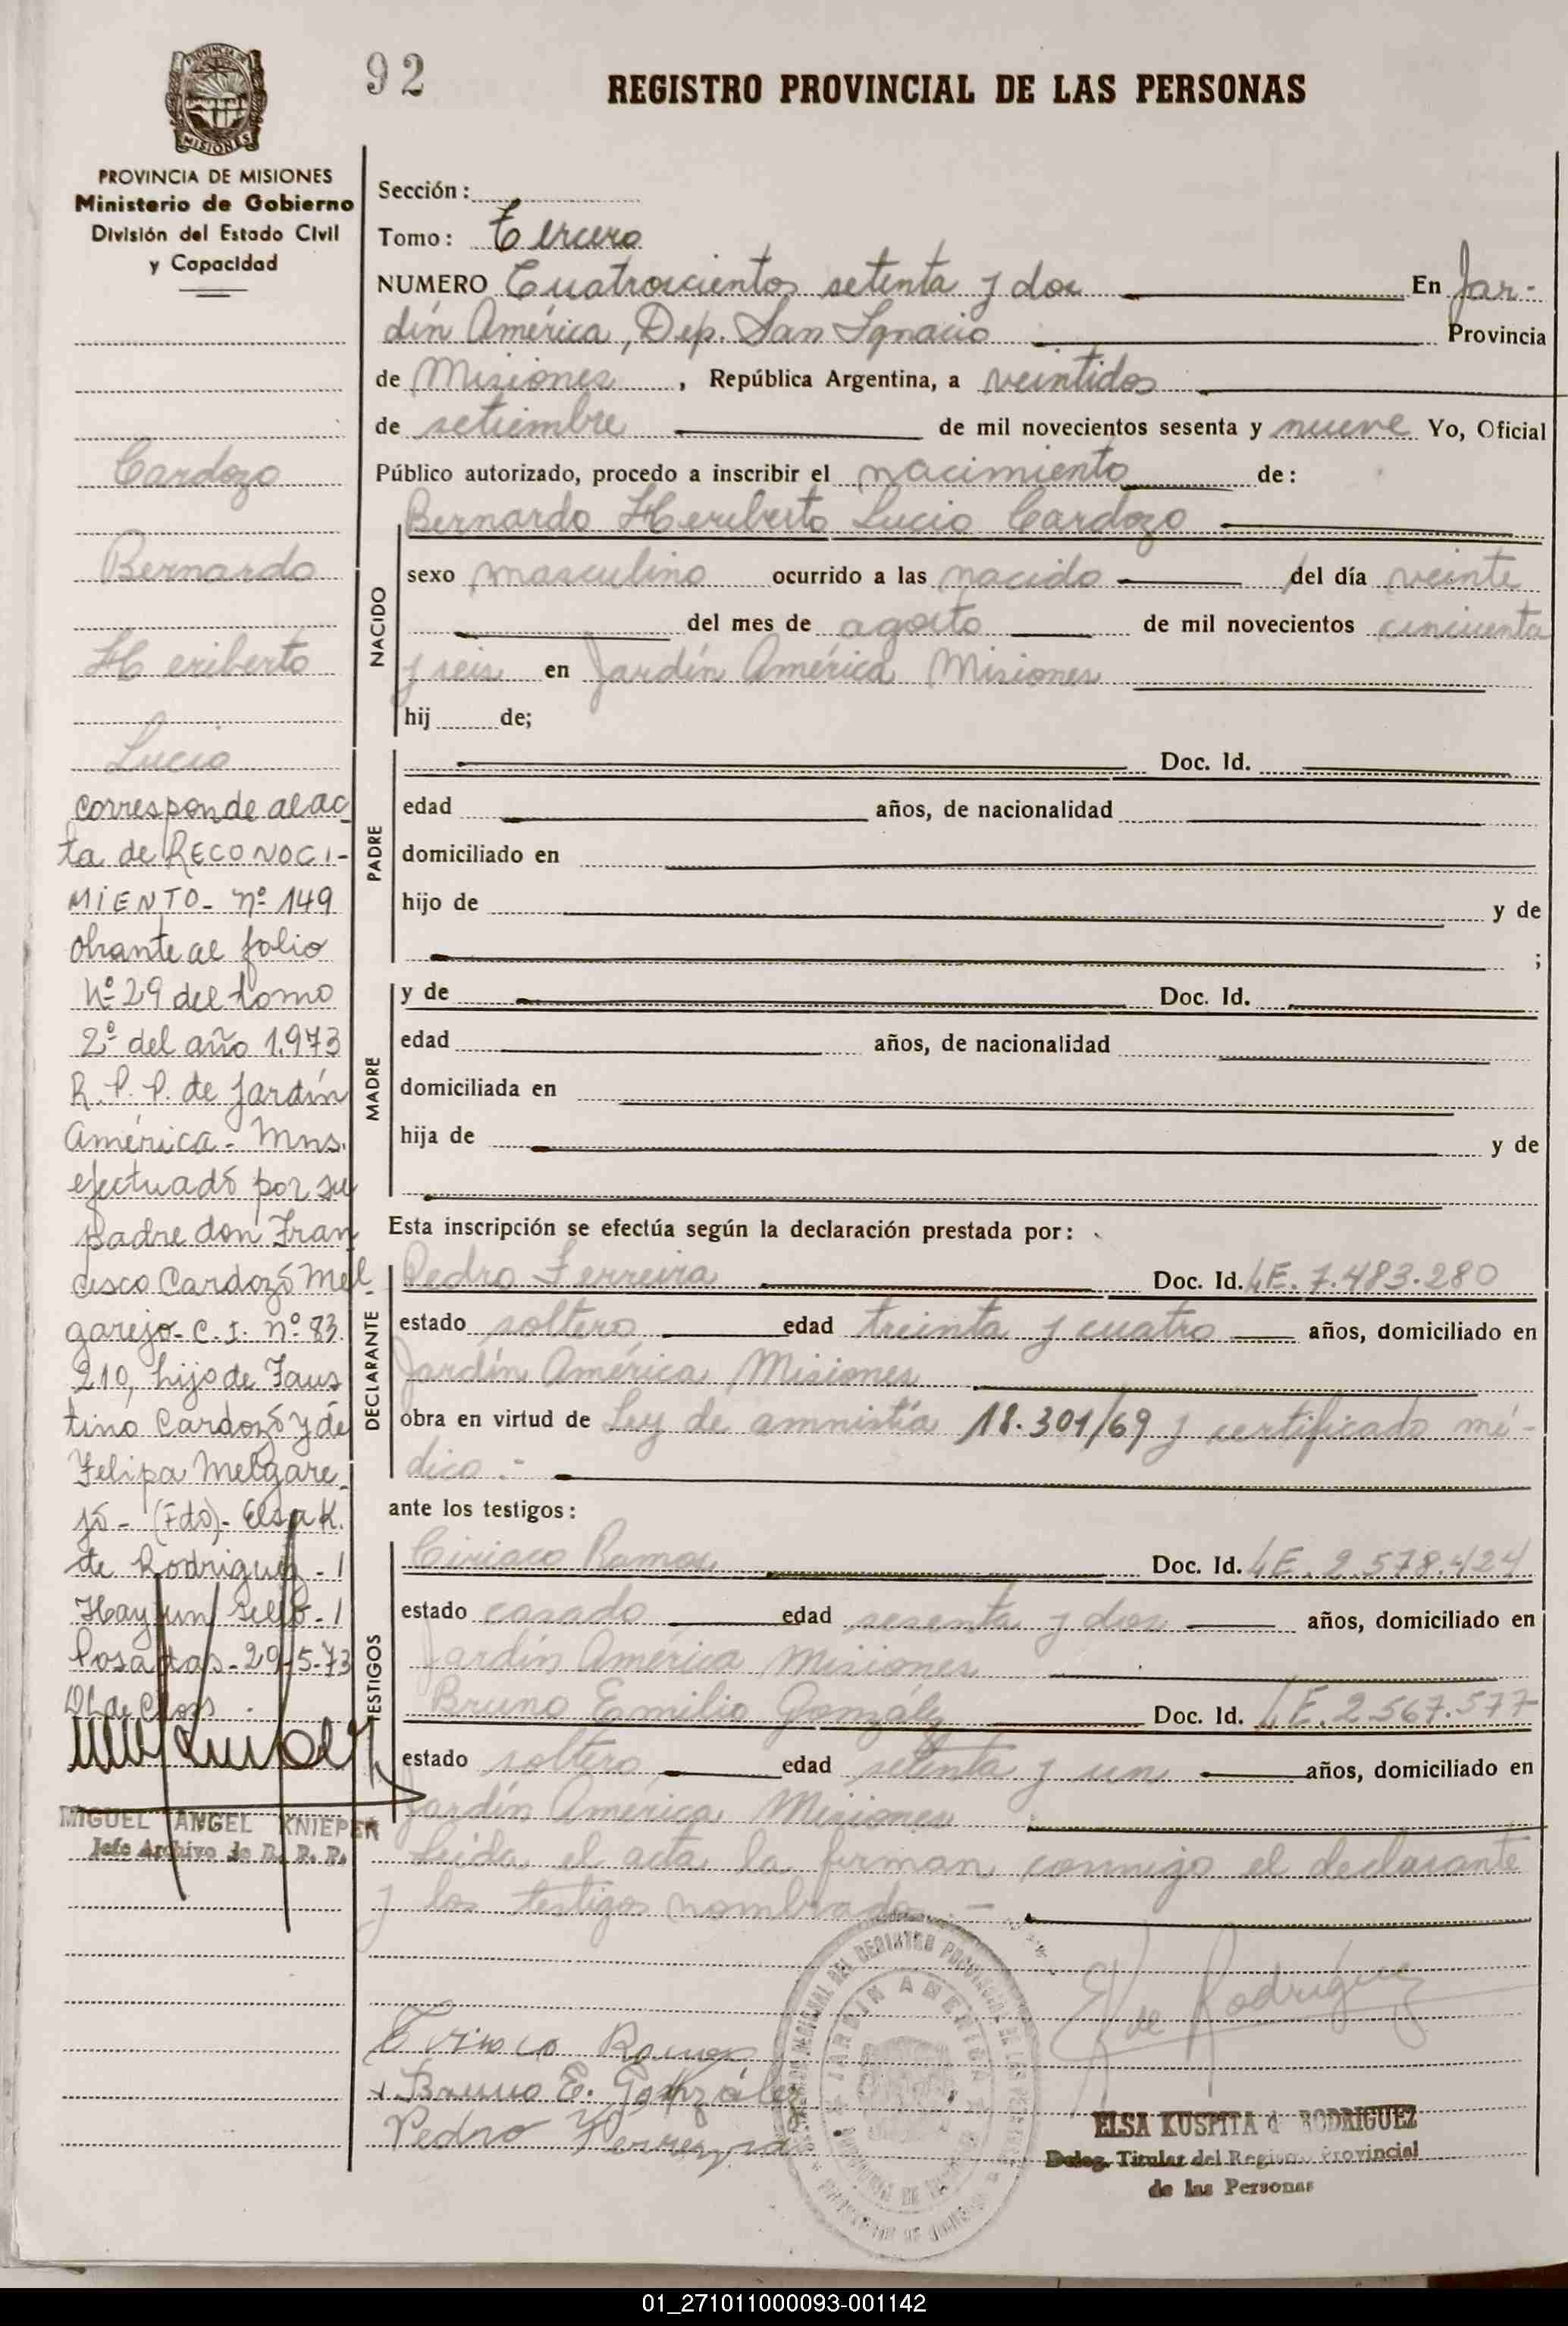 92
REGISTRO PROVINCIAL DE LAS PERSONAS
PROVINCIA DE MISIONES
Ministerio de Gobierno
División del Estado Civil
y Capacidad
Cardozo
Bernardo
Heriberto
Lucio
corresponde al ac-
ta de RECONOCI-
MIENTO - nº 149
obrante al folio
Nº 29 del tomo
2º del año 1.973
R. P. P. de Jardín
América - Mns.
efectuado por su
padre don Fran
cisco Cardozo Mel-
garejo - C.I. nº 83.
210, hijo de Faus
tino Cardozo y de
Felipa Melgare-
jo - (Fdo) - Elsa K.
de Rodriguez - /
Hay un sello - /
Posadas - 29-5-73
MIGUEL ANGEL KNIEPER
Jefe Archivo de R. P. P.
Sección:
Tomo: Tercero
NUMERO Cuatrocientos setenta y dos En Jar-
dín América, Dep. San Ignacio Provincia
de Misiones, República Argentina, a veintidos
de setiembre de mil novecientos sesenta y nueve Yo, Oficial
Público autorizado, procedo a inscribir el nacimiento de:
NACIDO
Bernardo Heriberto Lucio Cardozo
sexo masculino ocurrido a las nacido del día veinte
del mes de agosto de mil novecientos cincuenta
y seis en Jardín América Misiones
hij de;
PADRE
Doc. Id.
edad años, de nacionalidad
domiciliado en
hijo de y de
;
MADRE
y de Doc. Id.
edad años, de nacionalidad
domiciliada en
hija de y de
Esta inscripción se efectúa según la declaración prestada por:
DECLARANTE
Pedro Ferreira Doc. Id. LE. 7.483.280
estado soltero edad treinta y cuatro años, domiciliado en
Jardín América Misiones
obra en virtud de Ley de amnistía 18.301/69 y certificado mé-
dico.-
ante los testigos:
TESTIGOS
Ciriaco Ramos Doc. Id. LE. 2.578.424
estado casado edad sesenta y dos años, domiciliado en
Jardín América Misiones
Bruno Emilio González Doc. Id. LE. 2.567.577
estado soltero edad setenta y un años, domiciliado en
Jardín América Misiones
Leida el acta la firman conmigo el declarante
y los testigos nombrados.-
Ciriaco Ramos
Bruno E. González
Pedro Ferreyra
JARDIN AMERICA
E K de Rodríguez
ELSA KUSPITA d RODRIGUEZ
Deleg. Titular del Registro Provincial
de las Personas
01_271011000093-001142